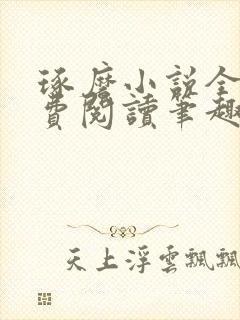 琢磨小說全
費閱讀筆趣
天上浮雲飄飄